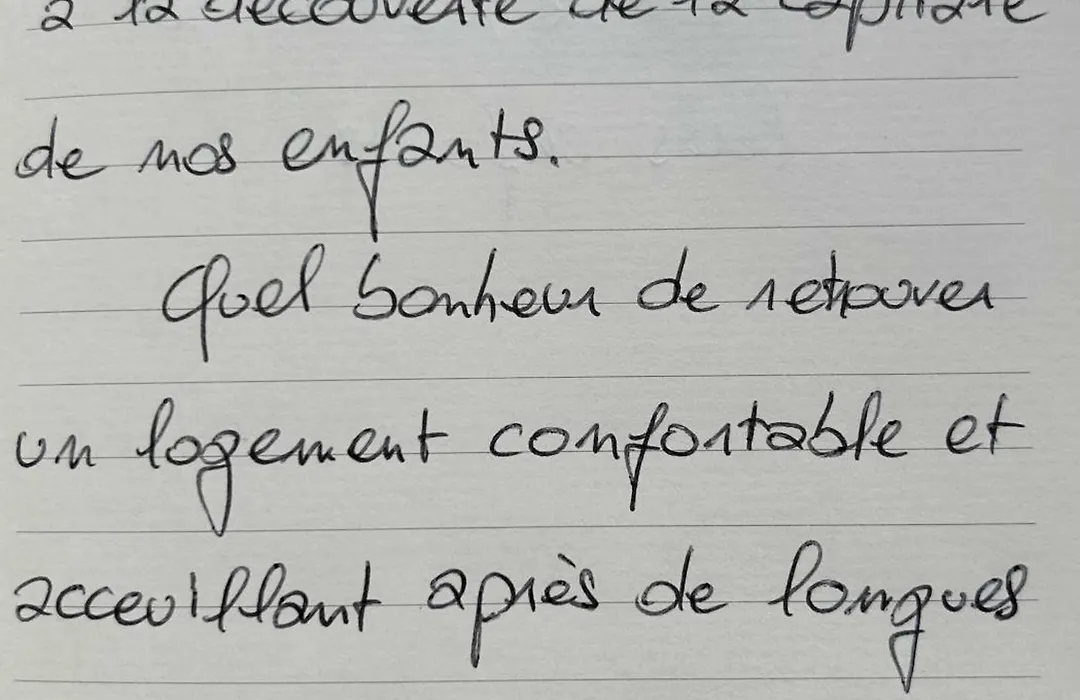 à la découverte de la capitale
de nos enfants.
Quel bonheur de retrouver
un logement confortable et
acceuillant après de longues